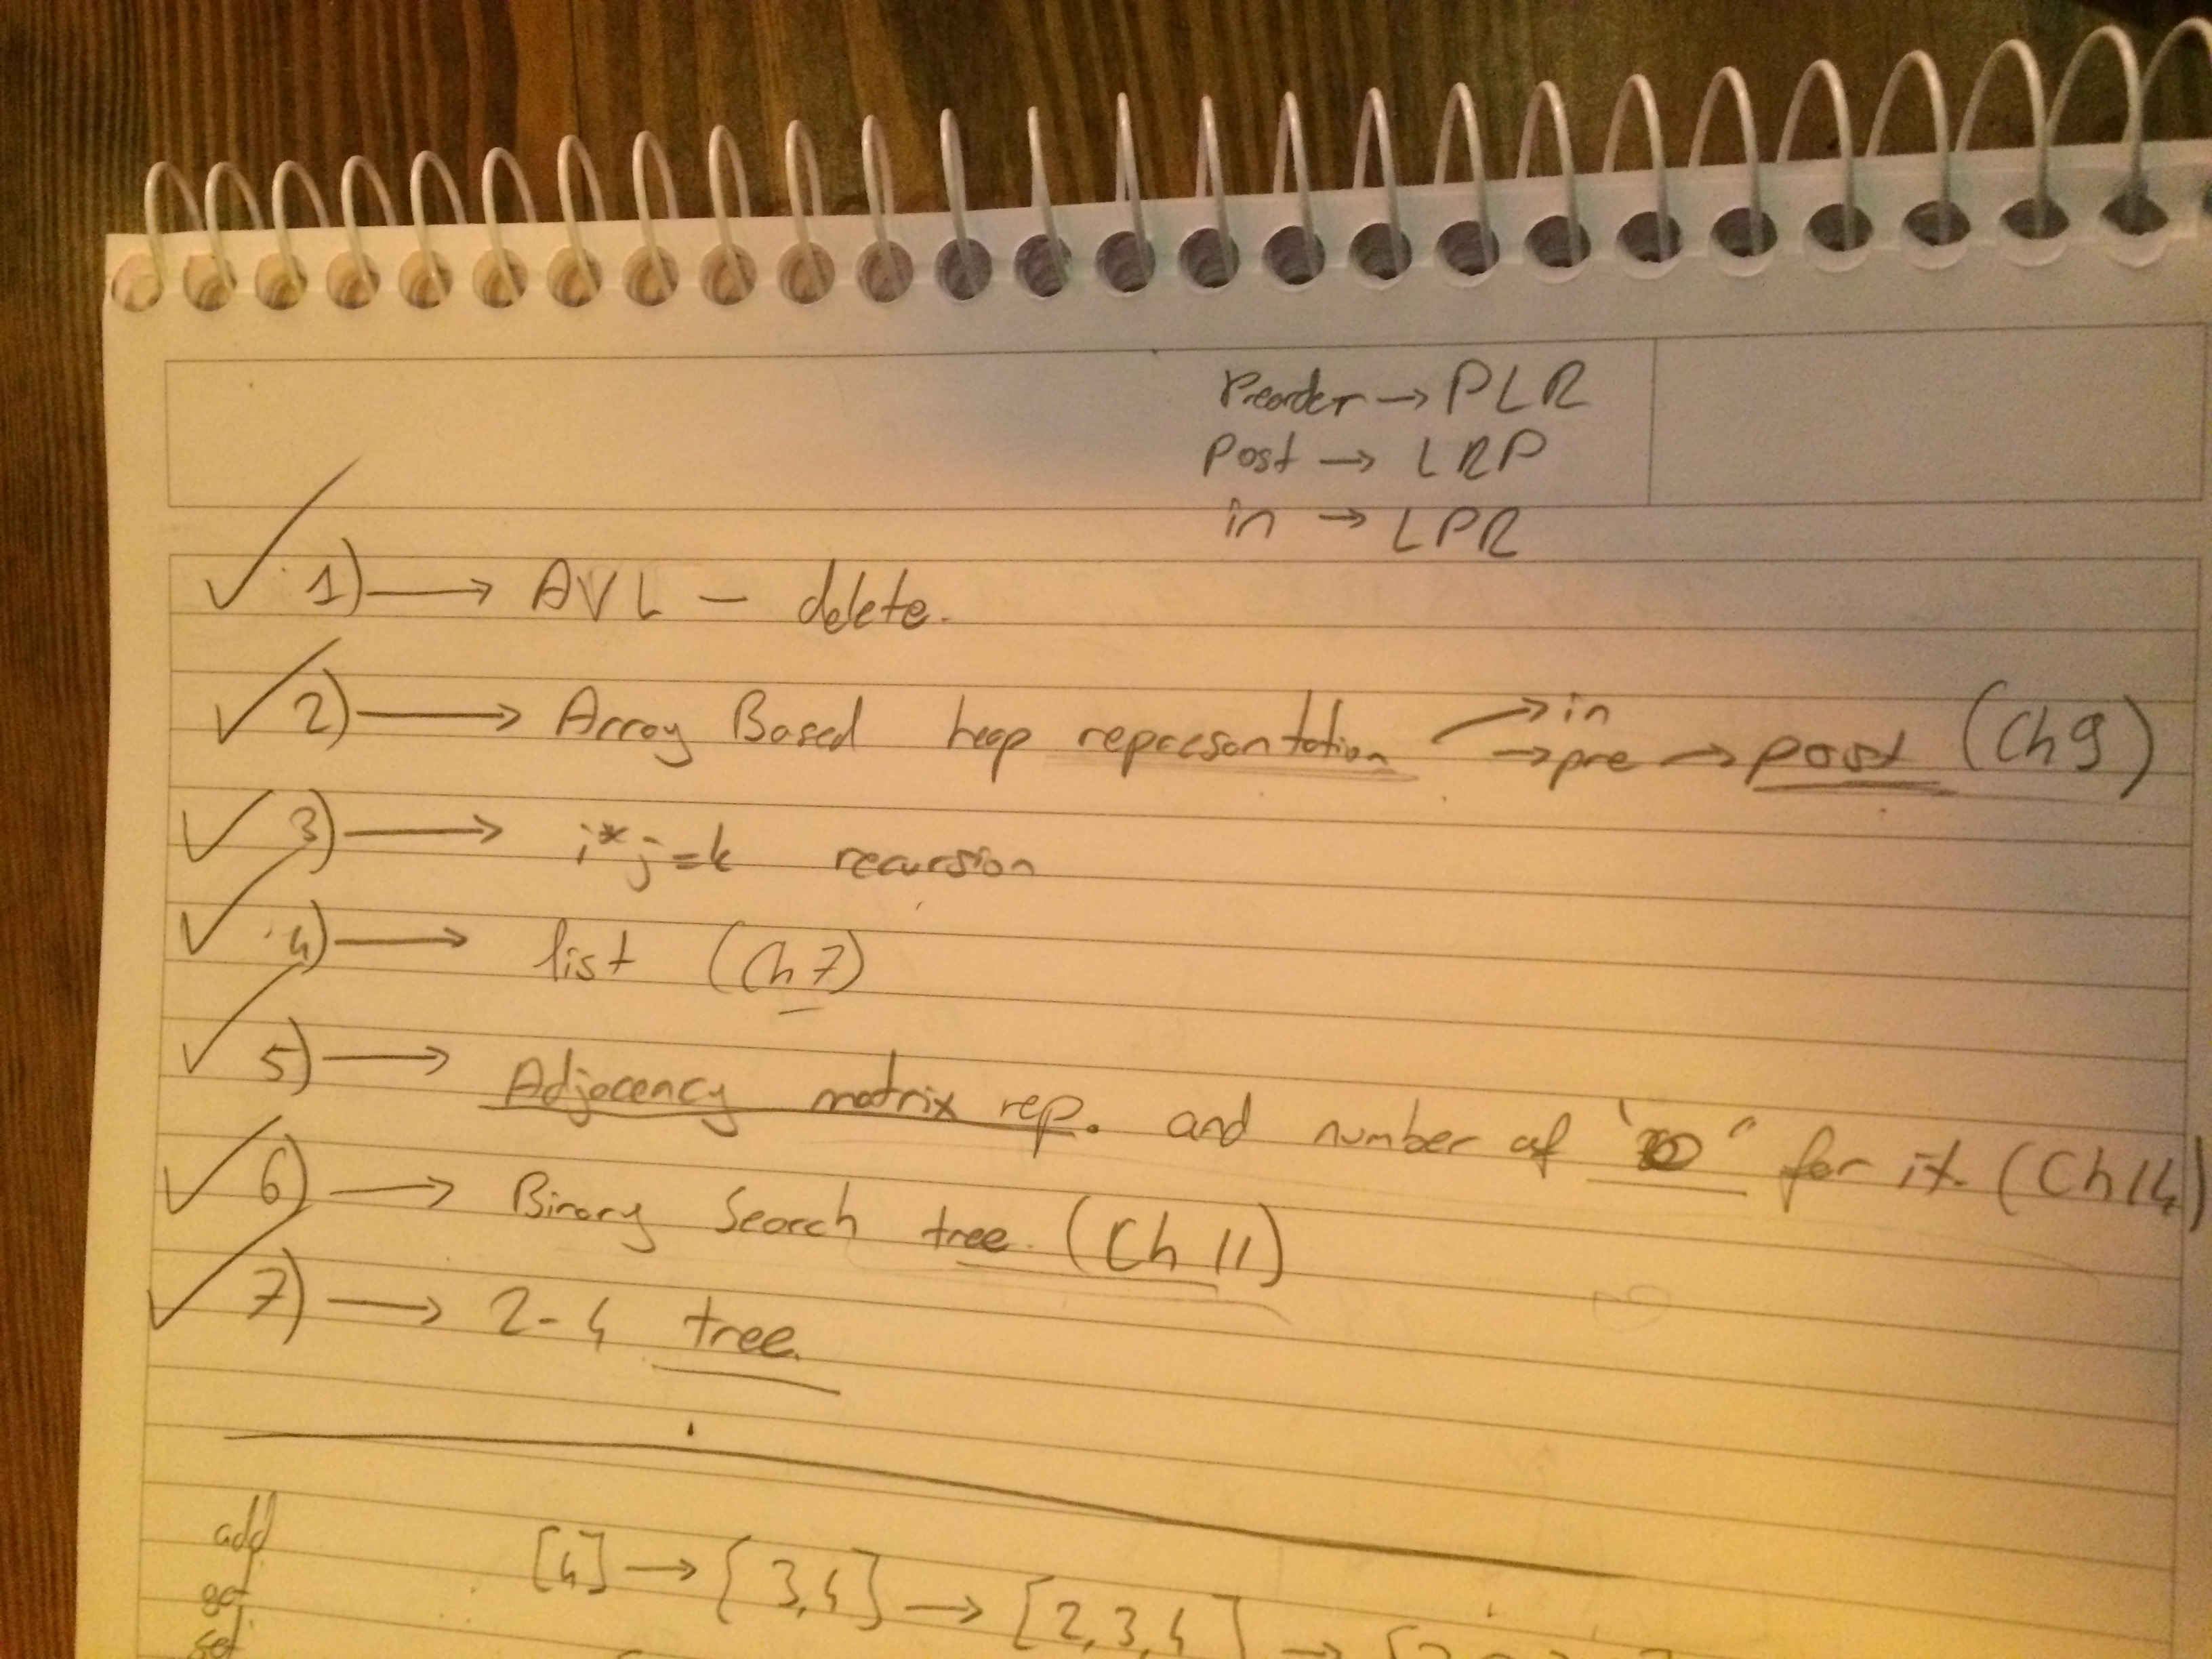 Preorder → PLR
Post → LRP
in → LPR
✓ 1) → AVL — delete.
✓ 2) → Array Based heap representation → in → pre → post (Ch 9)
✓ 3) → i*j=k recursion
✓ 4) → list (Ch 7)
✓ 5) → Adjacency matrix rep. and number of " " for it. (Ch 14)
✓ 6) → Binary Search tree. (Ch 11)
✓ 7) → 2-4 tree.
add [4] → [3,4] → [2,3,4] →
get
set